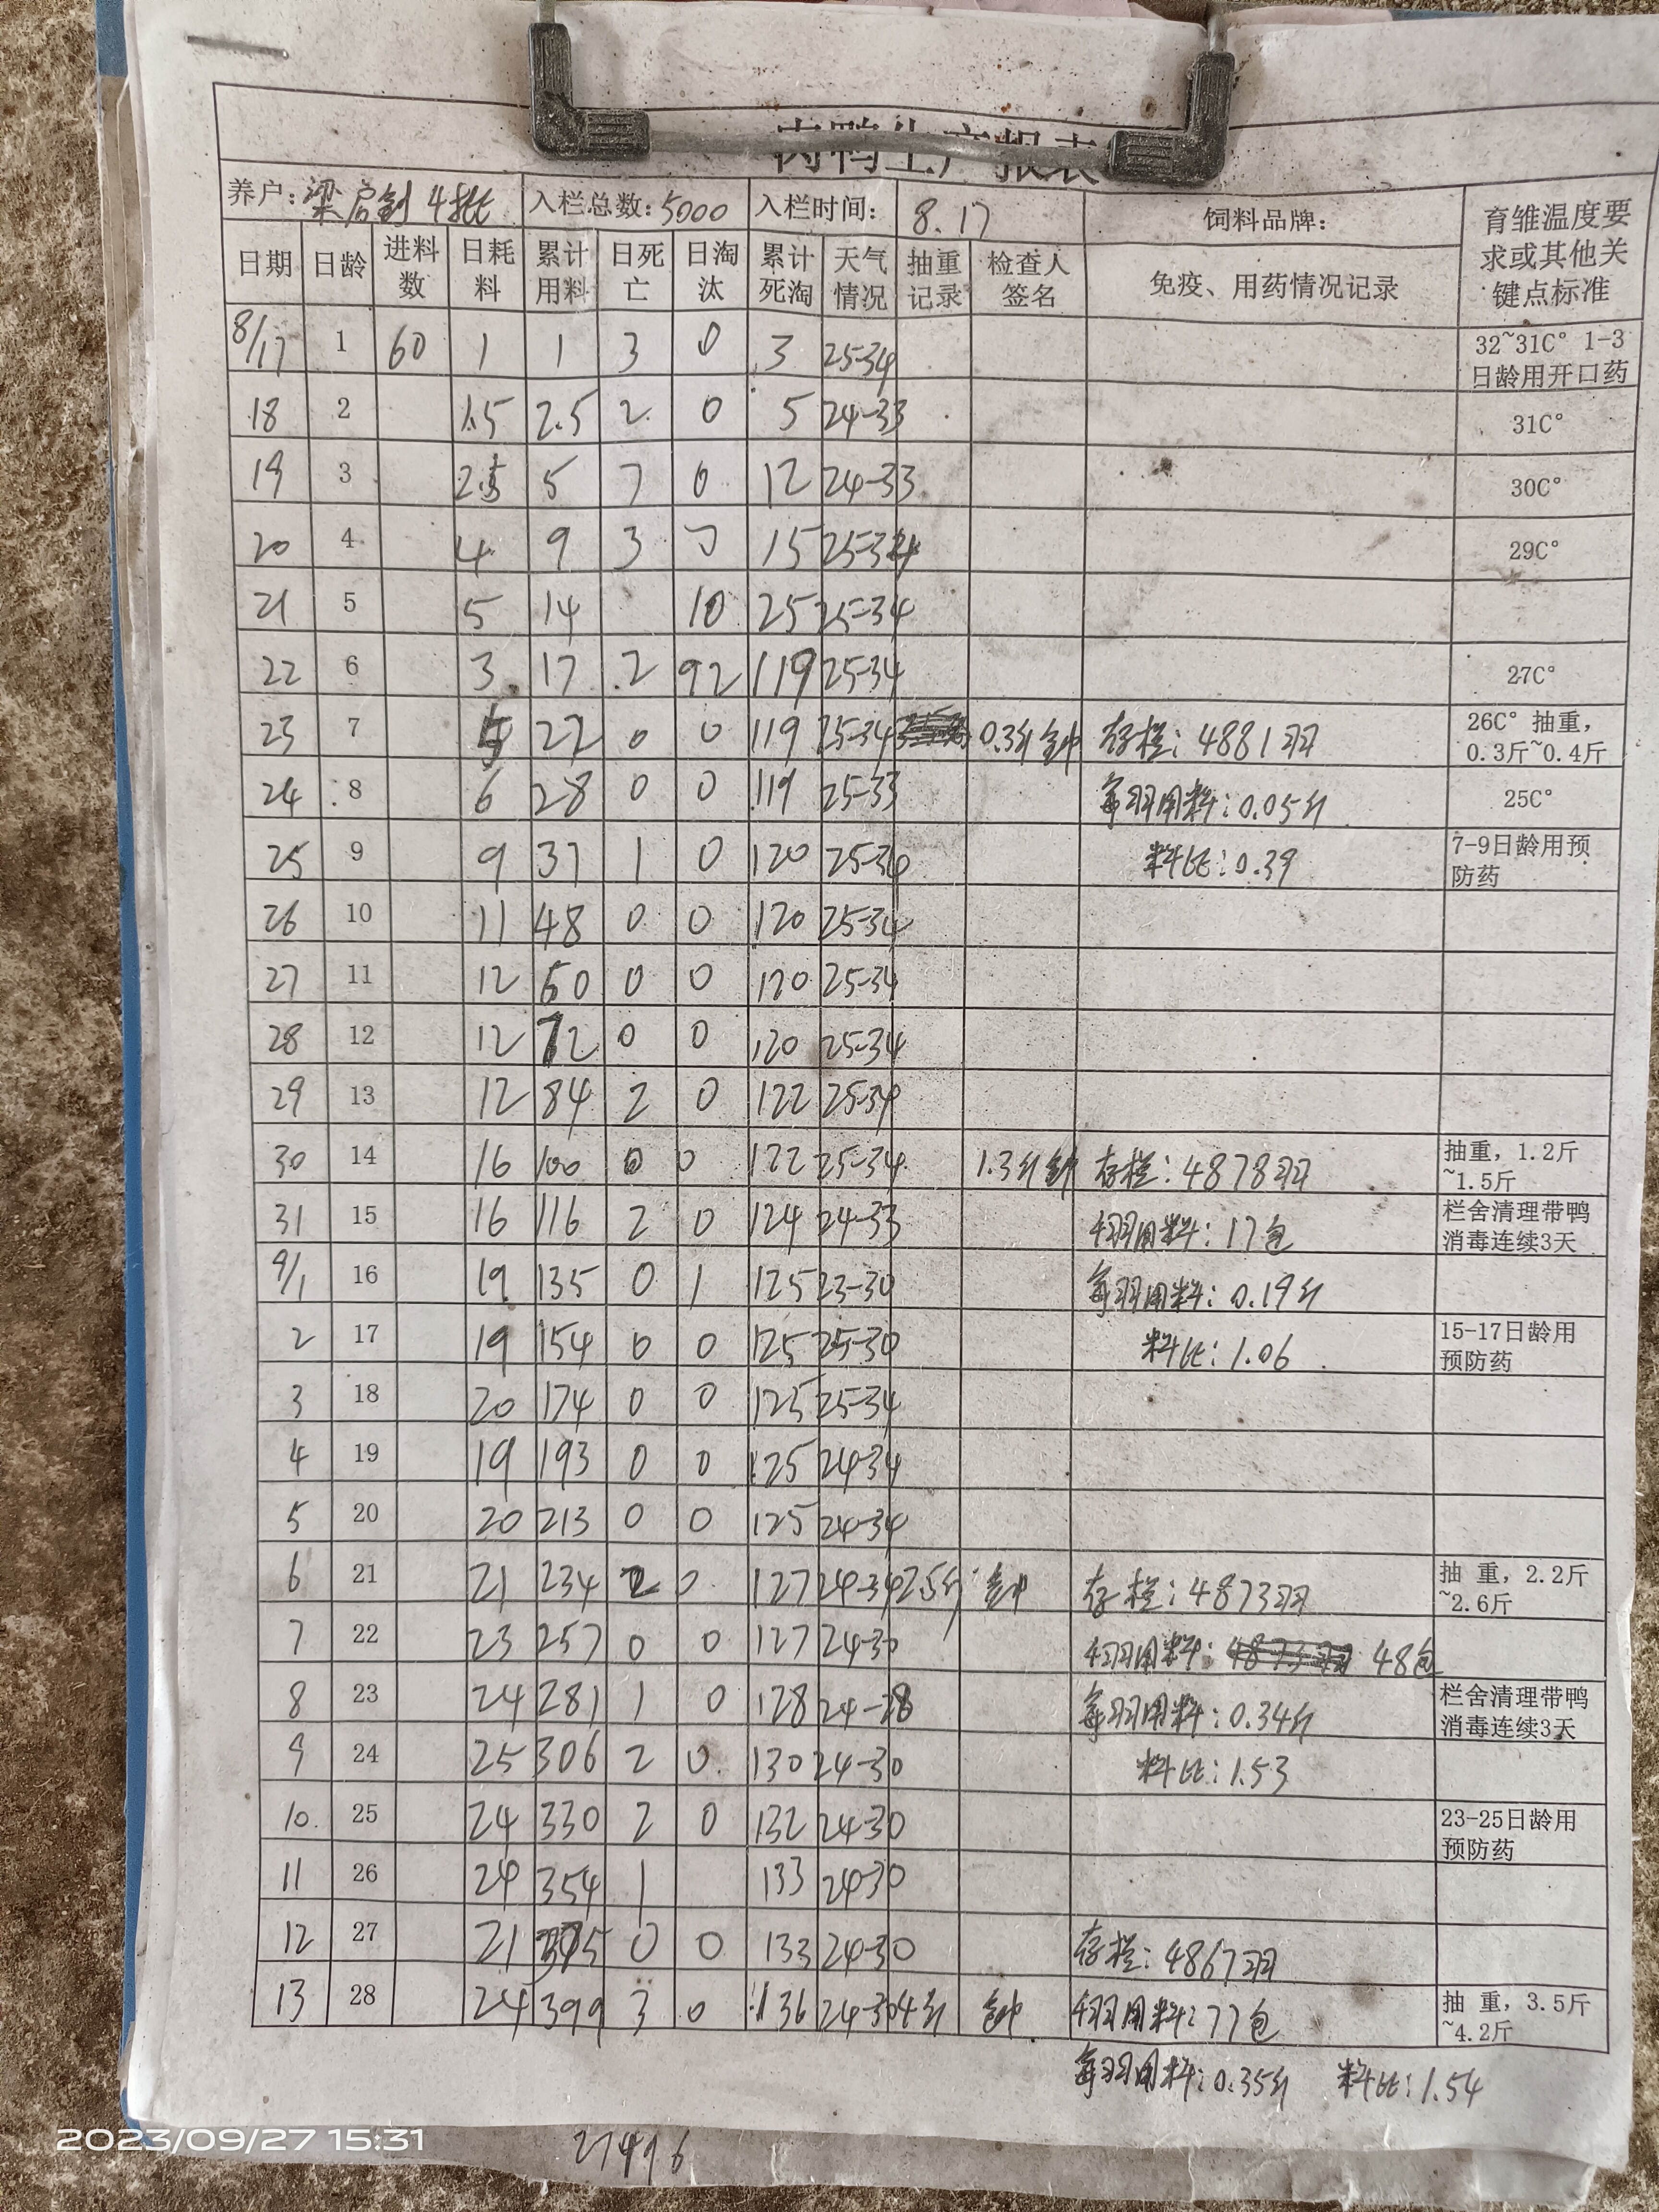 肉鸭生产报表
养户: 梁启钊 4批 入栏总数: 5000 入栏时间: 8.17 饲料品牌: 育雏温度要求或其他关键点标准
日期 日龄 进料数 日耗料 累计用料 日死亡 日淘汰 累计死淘 天气情况 抽重记录 检查人签名 免疫、用药情况记录
8/17 1 60 1 1 3 0 3 25-34 32~31C° 1-3日龄用开口药
18 2 1.5 2.5 2 0 5 24-33 31C°
19 3 2.5 5 7 0 12 24-33 30C°
20 4 4 9 3 0 15 25-34 29C°
21 5 5 14 10 25 25-34
22 6 3 17 2 92 119 25-34 27C°
23 7 5 22 0 0 119 25-34 0.3斤 钟 存栏: 4881羽 26C° 抽重, 0.3斤~0.4斤
24 8 6 28 0 0 119 25-33 每羽用料: 0.05斤 25C°
25 9 9 37 1 0 120 25-34 料比: 0.39 7-9日龄用预防药
26 10 11 48 0 0 120 25-34
27 11 12 60 0 0 120 25-34
28 12 12 72 0 0 120 25-34
29 13 12 84 2 0 122 25-34
30 14 16 100 0 0 122 25-34 1.3斤 钟 存栏: 4878羽 抽重, 1.2斤~1.5斤
31 15 16 116 2 0 124 24-33 千羽用料: 17包 栏舍清理带鸭消毒连续3天
9/1 16 19 135 0 1 125 23-30 每羽用料: 0.19斤
2 17 19 154 0 0 125 25-30 料比: 1.06 15-17日龄用预防药
3 18 20 174 0 0 125 25-34
4 19 19 193 0 0 125 24-34
5 20 20 213 0 0 125 24-34
6 21 21 234 2 0 127 24-34 2.5斤 钟 存栏: 4873羽 抽 重, 2.2斤~2.6斤
7 22 23 257 0 0 127 24-30 千羽用料: 48包
8 23 24 281 1 0 128 24-28 每羽用料: 0.34斤 栏舍清理带鸭消毒连续3天
9 24 25 306 2 0 130 24-30 料比: 1.53
10 25 24 330 2 0 132 24-30 23-25日龄用预防药
11 26 24 354 1 133 24-30
12 27 21 375 0 0 133 24-30 存栏: 4867羽
13 28 24 399 3 0 136 24-30 4斤 钟 千羽用料: 77包 抽 重, 3.5斤~4.2斤
每羽用料: 0.35斤 料比: 1.54
2023/09/27 15:31
27496